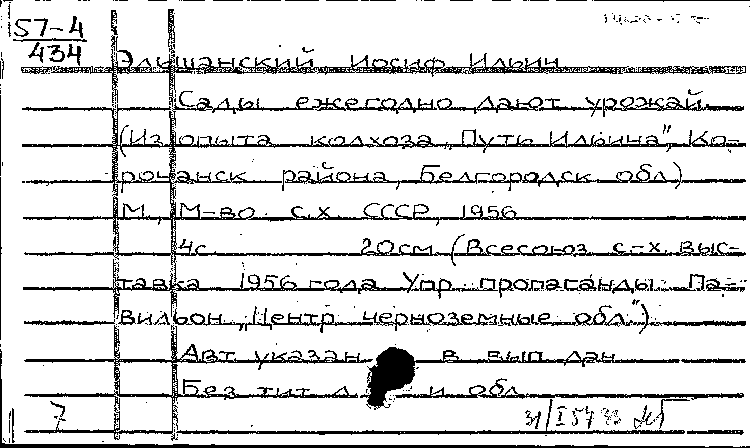 57-4
434
Элишанский, Иосиф Ильич
Сады ежегодно дают урожай.
(Из опыта колхоза „Путь Ильича", Ко-
рочанск. района, Белгородск. обл.)
М., М-во с.х. СССР, 1956
4с. 20см. (Всесоюз. с.-х. выс-
тавка 1956 года. Упр. пропаганды. Па-
вильон „Центр. черноземные обл.")
Авт. указан в вып. дан.
Без тит. л. и обл.
7 31/I 57